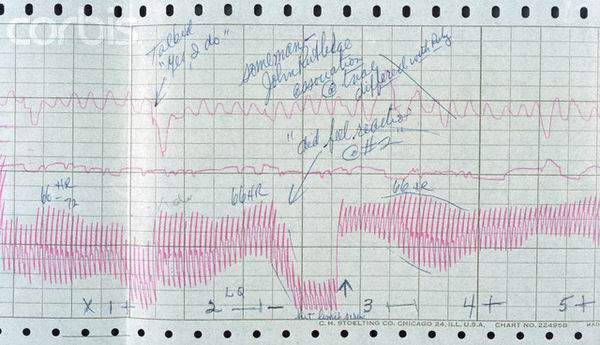 corbis
Talked
"Yes, I do"
someman-
John Rutledge
association
@ trial
differed with Ruby
"did feel reaction
@ #2"
66 HR
- 72
66 HR
66 HR
X 1 +
2 LQ -
3
4 +
5 +
C. H. STOELTING CO. CHICAGO 24, ILL. U.S.A. CHART NO. 22495B MAD